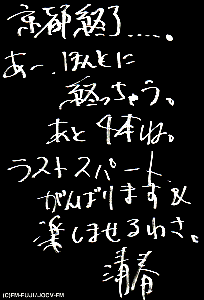 京都終了……。
あー、ほんとに
終っちゃう。
あと4本ね。
ラストスパート
がんばります&
楽しませるわさ。
清春
(C)FM-FUJI/JOCV-FM